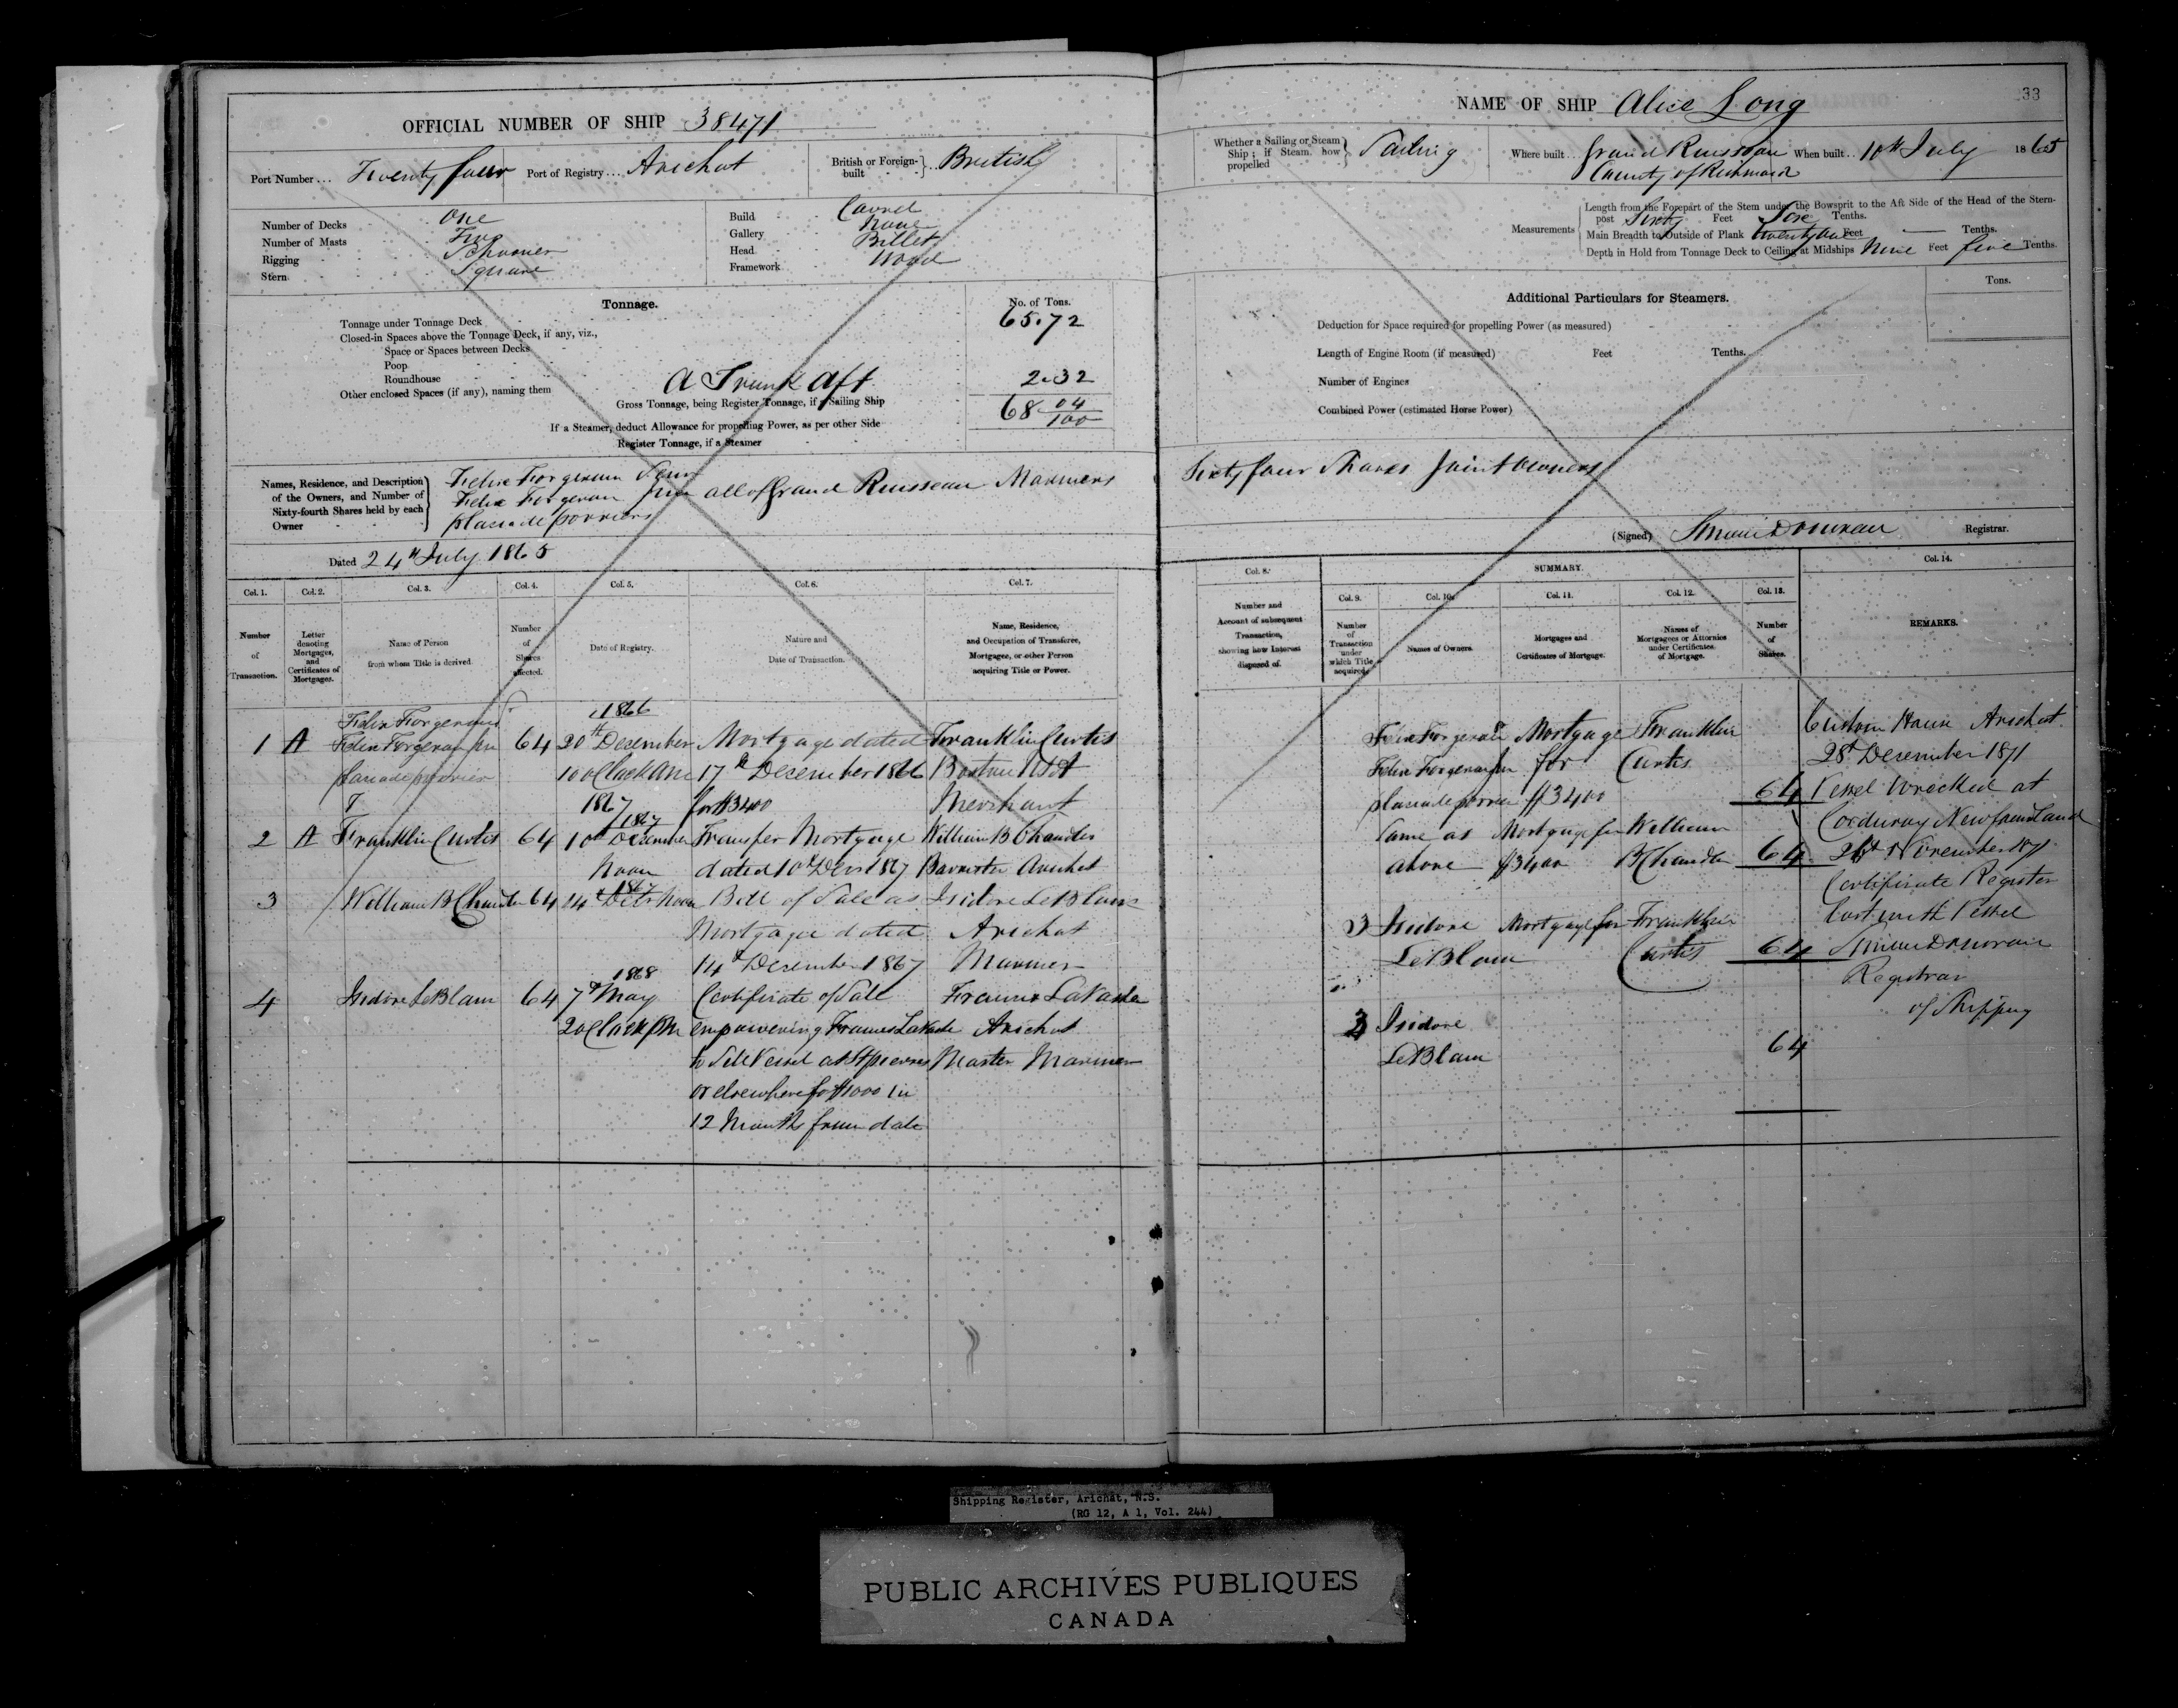 OFFICIAL NUMBER OF SHIP 38471
Port Number... Twenty four Port of Registry... Arichat British or Foreign-built British
Number of Decks One
Number of Masts Two
Rigging Schooner
Stern Square
Build Carvel
Gallery None
Head Billet
Framework Wood
Tonnage. No. of Tons.
Tonnage under Tonnage Deck 65.72
Closed-in Spaces above the Tonnage Deck, if any, viz.,
Space or Spaces between Decks
Poop
Roundhouse
Other enclosed Spaces (if any), naming them A Trunk aft 2.32
Gross Tonnage, being Register Tonnage, if a Sailing Ship 68 04/100
If a Steamer, deduct Allowance for propelling Power, as per other Side
Register Tonnage, if a Steamer
Names, Residence, and Description of the Owners, and Number of Sixty-fourth Shares held by each Owner
Felix Forgeron Senr
Felix Forgeron Junr all of Grand Ruisseau Mariners
Dated 24th July 1865
Col. 1. Col. 2. Col. 3. Col. 4. Col. 5. Col. 6. Col. 7.
Number of Transaction.
Letter denoting Mortgages, and Certificates of Mortgages.
Name of Person from whom Title is derived.
Number of Shares affected.
Date of Registry.
Nature and Date of Transaction.
Name, Residence, and Occupation of Transferee, Mortgagee, or other Person acquiring Title or Power.
1866
1 A Felix Forgeron Jnr 64 20th December Mortgage dated Franklin Curtis
10 O Clock Am 17th December 1866 Boston USA
1867 for $3400 Merchant
1867
2 A Franklin Curtis 64 10th December Transfer Mortgage William B Chandler
Noon dated 10th Decr 1867 Barrister Arichat
1867
3 William B Chandler 64 14th Decr Noon Bill of Sale as Isidore LeBlanc
Mortgagee dated Arichat
14th December 1867 Mariner
1868
4 Isidore LeBlanc 64 7th May Certificate of Sale
2 O Clock Pm empowering Arichat
to Sell Vessel at St Pierre Master Mariner
or elsewhere for $1000 in
12 Months from date
NAME OF SHIP Alice Long 33
Whether a Sailing or Steam Ship; if Steam, how propelled Sailing
Where built... Grand Ruisseau County of Richmond When built.. 10th July 1865
Measurements
Length from the Forepart of the Stem under the Bowsprit to the Aft Side of the Head of the Stern-
post Sixty Feet Tenths.
Main Breadth to Outside of Plank Twenty one Feet — Tenths.
Depth in Hold from Tonnage Deck to Ceiling at Midships Nine Feet five Tenths.
Additional Particulars for Steamers. Tons.
Deduction for Space required for propelling Power (as measured)
Length of Engine Room (if measured) Feet Tenths.
Number of Engines
Combined Power (estimated Horse Power)
Sixty four Shares Joint Owners
(Signed) Registrar.
Col. 8. SUMMARY. Col. 14.
Col. 9. Col. 10. Col. 11. Col. 12. Col. 13.
Number and Account of subsequent Transaction, showing how Interest disposed of.
Number of Transaction under which Title acquired.
Names of Owners.
Mortgages and Certificates of Mortgage.
Names of Mortgagees or Attornies under Certificates of Mortgage.
Number of Shares.
REMARKS.
Felix Forgeron Mortgage Franklin
Felix Forgeron Jnr for Curtis
$3400 64
Same as Mortgage for William
above $3400 B Chandler 64
3 Isidore Mortgage for Franklin
LeBlanc Curtis 64
3 Isidore
LeBlanc 64
Custom House Arichat
28th December 1871
Vessel Wrecked at
Codroy Newfoundland
November 1871
Certificate Register
Lost with Vessel
Registrar
of Shipping
Shipping Register, Arichat, N.S.
(RG 12, A 1, Vol. 244)
PUBLIC ARCHIVES PUBLIQUES
CANADA